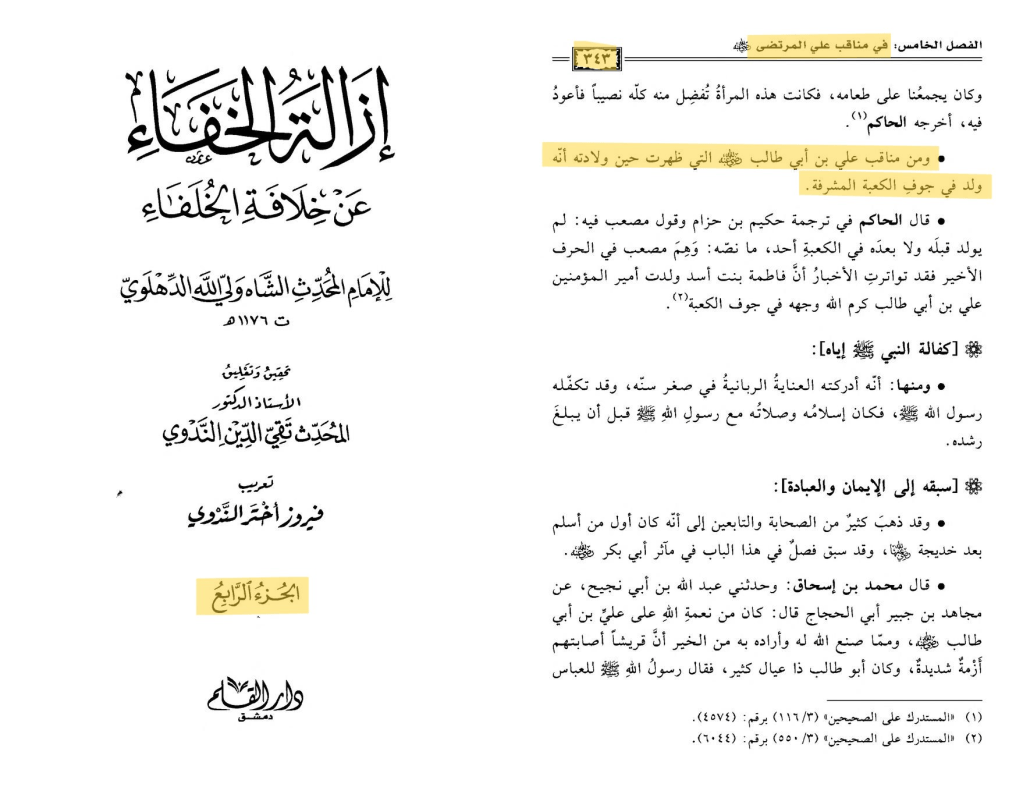 إزالة الخفاء
عن خلافة الخلفاء
للإمام المحدث الشاه ولي الله الدهلوي
ت ١١٧٦ هـ
تحقيق وتعليق
الأستاذ الدكتور
المحدث تقي الدين الندوي
تعريب
فيروز أختر الندوي
الجزء الرابع
دار القلم
دمشق
الفصل الخامس: في مناقب علي المرتضى رضي الله عنه
٣٤٣
وكان يجمعُنا على طعامه، فكانت هذه المرأةُ تُفضِل منه كلّه نصيباً فأعودُ
فيه، أخرجه الحاكم(١).
• ومن مناقب علي بن أبي طالب رضي الله عنه التي ظهرت حين ولادته أنّه
ولد في جوفِ الكعبة المشرفة.
• قال الحاكم في ترجمة حكيم بن حزام وقول مصعب فيه: لم
يولد قبلَه ولا بعدَه في الكعبةِ أحد، ما نصّه: وَهِمَ مصعب في الحرف
الأخير فقد تواترتِ الأخبارُ أنَّ فاطمة بنت أسد ولدت أمير المؤمنين
علي بن أبي طالب كرم الله وجهه في جوف الكعبة(٢).
[كفالة النبي ﷺ إياه]:
• ومنها: أنّه أدركته العنايةُ الربانيةُ في صغر سنّه، وقد تكفّله
رسول الله ﷺ، فكان إسلامُه وصلاتُه مع رسولِ اللهِ ﷺ قبل أن يبلغَ
رشده.
[سبقه إلى الإيمان والعبادة]:
• وقد ذهبَ كثيرٌ من الصحابة والتابعين إلى أنّه كان أول من أسلم
بعد خديجة رضي الله عنها، وقد سبق فصلٌ في هذا الباب في مآثر أبي بكر رضي الله عنه.
• قال محمد بن إسحاق: وحدثني عبد الله بن أبي نجيح، عن
مجاهد بن جبير أبي الحجاج قال: كان من نعمةِ اللهِ على عليِّ بن أبي
طالب رضي الله عنه، وممّا صنع الله له وأراده به من الخير أنَّ قريشاً أصابتهم
أَزْمةٌ شديدةٌ، وكان أبو طالب ذا عيال كثير، فقال رسولُ اللهِ ﷺ للعباس
(١) «المستدرك على الصحيحين» (١١٦/٣) برقم: (٤٥٧٤).
(٢) «المستدرك على الصحيحين» (٥٥٠/٣) برقم: (٦٠٤٤).